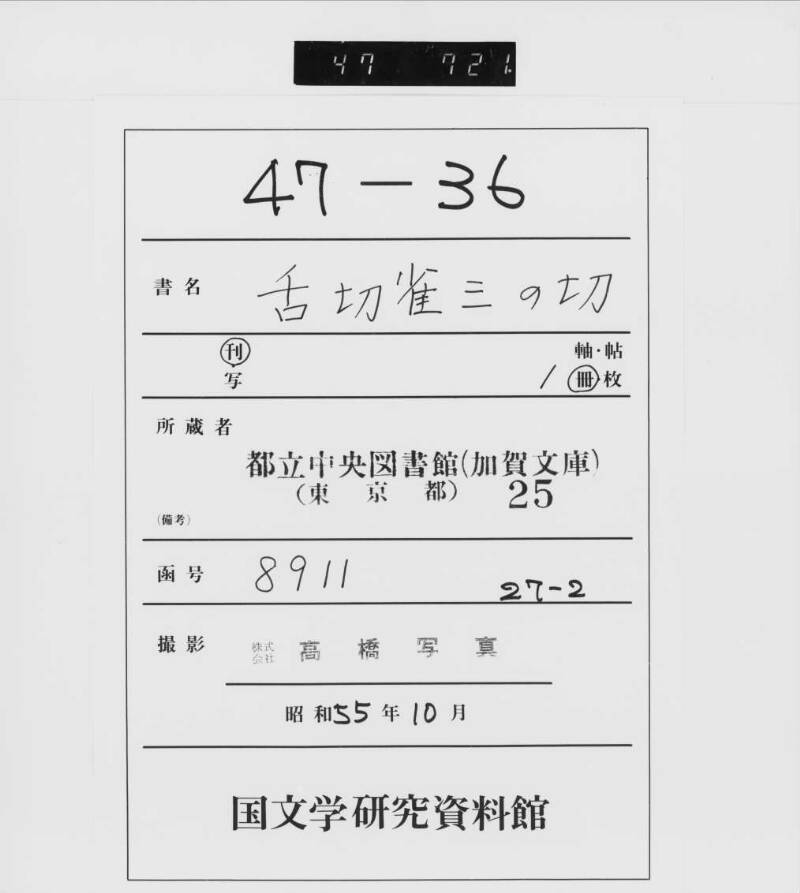 47 721.
47-36
書名 舌切雀三の切
刊 軸・帖
写 1 冊・枚
所蔵者
都立中央図書館(加賀文庫)
(東京都) 25
(備考)
函号 8911 27-2
撮影 株式会社 高橋写真
昭和55年10月
国文学研究資料館